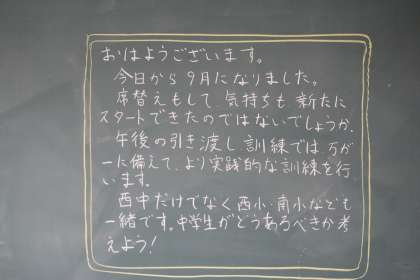 おはようございます。
今日から9月になりました。
席替えもして、気持ちも新たに
スタートできたのではないでしょうか。
午後の引き渡し訓練では万が
一に備えて、より実践的な訓練を行
います。
西中だけでなく西小・南小なども
一緒です。中学生がどうあるべきか考
えよう!